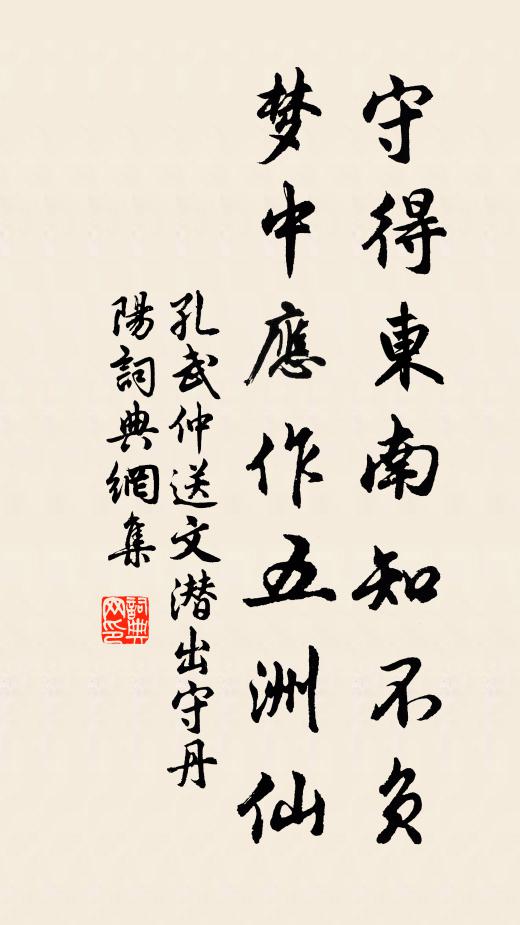 守得東南知不負
梦中應作五洲仙
孔武仲送文潜出守丹
陽詞典網集
詞典
网印